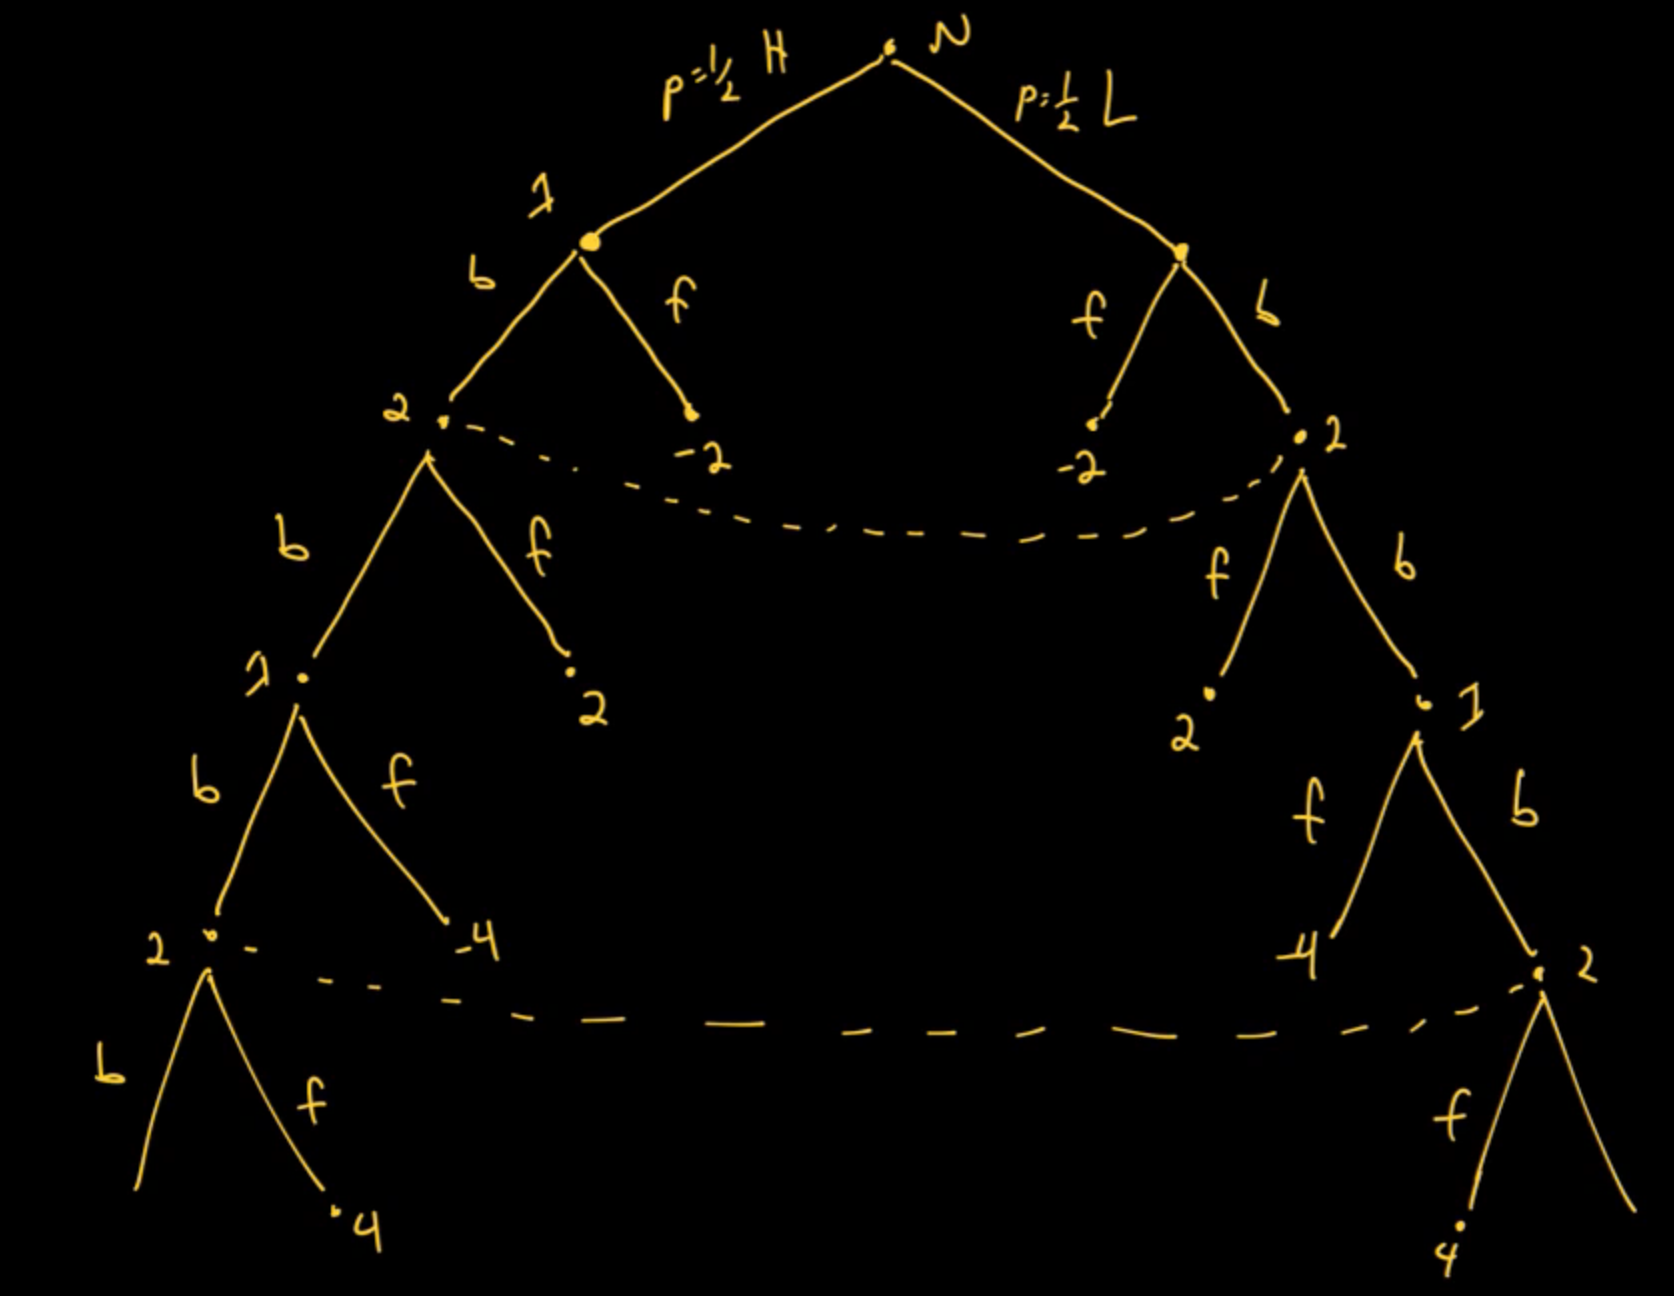 N
p=1/2 H
p=1/2 L
1
b f
f b
2
-2
-2
2
b f
f b
1
2
2
1
b f
f b
2
-4
-4
2
b f
f
4
4